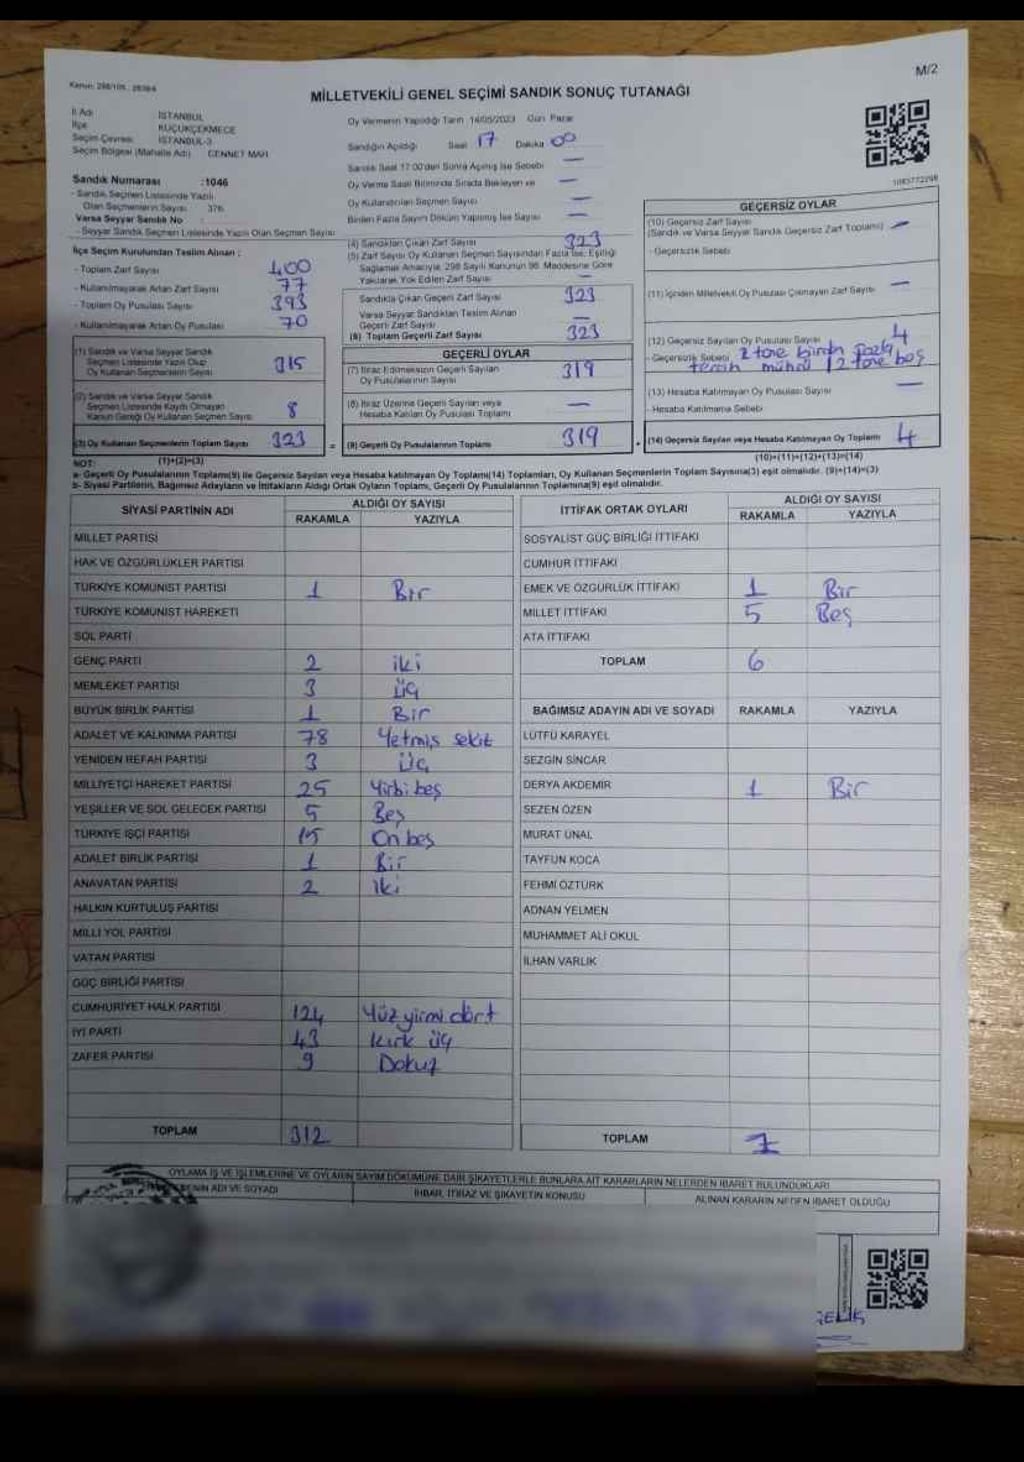 M/2
MİLLETVEKİLİ GENEL SEÇİMİ SANDIK SONUÇ TUTANAĞI
İl Adı İSTANBUL
İlçe KÜÇÜKÇEKMECE
Seçim Çevresi İSTANBUL-3
Seçim Bölgesi (Mahalle Adı) CENNET MAH
Sandık Numarası :1046
- Sandık Seçmen Listesinde Yazılı
Olan Seçmenlerin Sayısı 376
Varsa Seyyar Sandık No
- Seyyar Sandık Seçmen Listesinde Yazılı Olan Seçmen Sayısı
İlçe Seçim Kurulundan Teslim Alınan :
- Toplam Zarf Sayısı 400
- Kullanılmayarak Artan Zarf Sayısı 77
- Toplam Oy Pusulası Sayısı 393
- Kullanılmayarak Artan Oy Pusulası 70
(1) Sandık ve Varsa Seyyar Sandık
Seçmen Listesinde Yazılı Olup
Oy Kullanan Seçmenlerin Sayısı 315
(2) Sandık ve Varsa Seyyar Sandık
Seçmen Listesinde Kaydı Olmayan
Kanun Gereği Oy Kullanan Seçmen Sayısı 8
(3) Oy Kullanan Seçmenlerin Toplam Sayısı 323
(1)+(2)=(3)
Oy Vermenin Yapıldığı Tarih 14/05/2023 Gün Pazar
Sandığın Açıldığı Saat 17 Dakika 00
Sandık Saat 17:00'den Sonra Açılmış İse Sebebi —
Oy Verme Saati Bitiminde Sırada Bekleyen ve —
Oy Kullandırılan Seçmen Sayısı —
Birden Fazla Sayım Döküm Yapılmış İse Sayısı —
(4) Sandıktan Çıkan Zarf Sayısı 323
(5) Zarf Sayısı Oy Kullanan Seçmen Sayısından Fazla İse, Eşitliği
Sağlamak Amacıyla, 298 Sayılı Kanunun 98. Maddesine Göre
Yakılarak Yok Edilen Zarf Sayısı —
Sandıkta Çıkan Geçerli Zarf Sayısı 323
Varsa Seyyar Sandıktan Teslim Alınan
Geçerli Zarf Sayısı —
(6) Toplam Geçerli Zarf Sayısı 323
GEÇERLİ OYLAR
(7) İtiraz Edilmeksizin Geçerli Sayılan
Oy Pusulalarının Sayısı 319
(8) İtiraz Üzerine Geçerli Sayılan veya
Hesaba Katılan Oy Pusulası Toplamı —
= (9) Geçerli Oy Pusulalarının Toplamı 319
GEÇERSİZ OYLAR
(10) Geçersiz Zarf Sayısı
(Sandık ve Varsa Seyyar Sandık Geçersiz Zarf Toplamı) —
- Geçersizlik Sebebi
(11) İçinden Milletvekili Oy Pusulası Çıkmayan Zarf Sayısı —
(12) Geçersiz Sayılan Oy Pusulası Sayısı 4
- Geçersizlik Sebebi 2 tane birden fazla
tercih mührü / 2 tane boş
(13) Hesaba Katılmayan Oy Pusulası Sayısı —
- Hesaba Katılmama Sebebi
(14) Geçersiz Sayılan veya Hesaba Katılmayan Oy Toplamı 4
(10)+(11)+(12)+(13)=(14)
NOT:
a- Geçerli Oy Pusulalarının Toplamı(9) ile Geçersiz Sayılan veya Hesaba katılmayan Oy Toplamı(14) Toplamları, Oy Kullanan Seçmenlerin Toplam Sayısına(3) eşit olmalıdır. (9)+(14)=(3)
b- Siyasi Partilerin, Bağımsız Adayların ve İttifakların Aldığı Ortak Oyların Toplamı, Geçerli Oy Pusulalarının Toplamına(9) eşit olmalıdır.
SİYASİ PARTİNİN ADI ALDIĞI OY SAYISI
RAKAMLA YAZIYLA
MİLLET PARTİSİ
HAK VE ÖZGÜRLÜKLER PARTİSİ
TÜRKİYE KOMÜNİST PARTİSİ 1 Bir
TÜRKİYE KOMÜNİST HAREKETİ
SOL PARTİ
GENÇ PARTİ 2 iki
MEMLEKET PARTİSİ 3 üç
BÜYÜK BİRLİK PARTİSİ 1 Bir
ADALET VE KALKINMA PARTİSİ 78 Yetmiş sekiz
YENİDEN REFAH PARTİSİ 3 Üç
MİLLİYETÇİ HAREKET PARTİSİ 25 Yirbi beş
YEŞİLLER VE SOL GELECEK PARTİSİ 5 Beş
TÜRKİYE İŞÇİ PARTİSİ 15 On beş
ADALET BİRLİK PARTİSİ 1 Bir
ANAVATAN PARTİSİ 2 iki
HALKIN KURTULUŞ PARTİSİ
MİLLİ YOL PARTİSİ
VATAN PARTİSİ
GÜÇ BİRLİĞİ PARTİSİ
CUMHURİYET HALK PARTİSİ 124 Yüz yirmi dört
İYİ PARTİ 43 Kırk üç
ZAFER PARTİSİ 9 Dokuz
TOPLAM 312
İTTİFAK ORTAK OYLARI ALDIĞI OY SAYISI
RAKAMLA YAZIYLA
SOSYALİST GÜÇ BİRLİĞİ İTTİFAKI
CUMHUR İTTİFAKI
EMEK VE ÖZGÜRLÜK İTTİFAKI 1 Bir
MİLLET İTTİFAKI 5 Beş
ATA İTTİFAKI
TOPLAM 6
BAĞIMSIZ ADAYIN ADI VE SOYADI RAKAMLA YAZIYLA
LÜTFÜ KARAYEL
SEZGİN SİNCAR
DERYA AKDEMİR 1 Bir
SEZEN ÖZEN
MURAT ÜNAL
TAYFUN KOCA
FEHMİ ÖZTÜRK
ADNAN YELMEN
MUHAMMET ALİ OKUL
İLHAN VARLIK
TOPLAM 7
OYLAMA İŞ VE İŞLEMLERİNE VE OYLARIN SAYIM DÖKÜMÜNE DAİR ŞİKAYETLERLE BUNLARA AİT KARARLARIN NELERDEN İBARET BULUNDUKLARI
ADI VE SOYADI İHBAR, İTİRAZ VE ŞİKAYETİN KONUSU ALINAN KARARIN NEDEN İBARET OLDUĞU